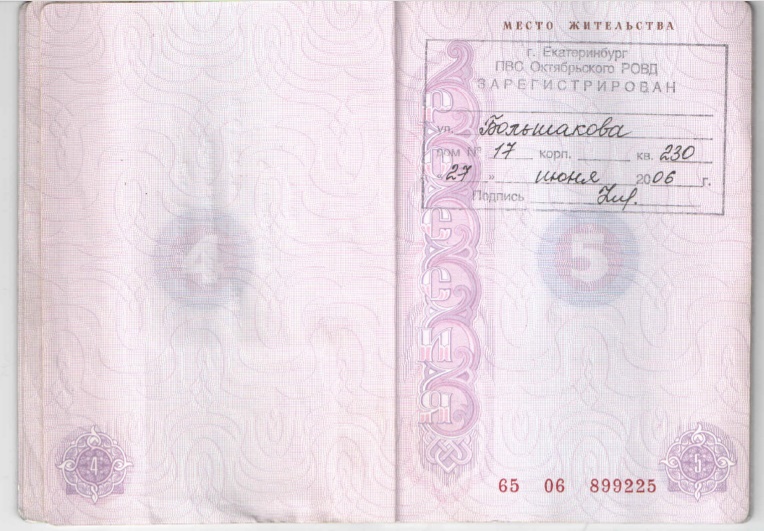 4
МЕСТО ЖИТЕЛЬСТВА
г. Екатеринбург
ПВС Октябрьского РОВД
ЗАРЕГИСТРИРОВАН
ул. Большакова
дом № 17 корп. кв. 230
"27" июня 2006 г.
Подпись
5
4
65 06 899225
5